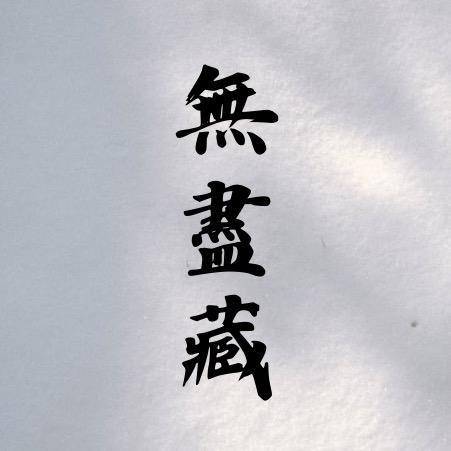 無盡藏